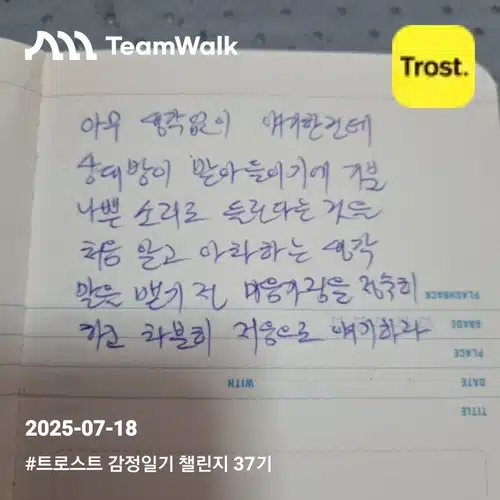 TeamWalk
Trost.
아무 생각없이 얘기한건데
상대방이 받아들이기에 기분
나쁜 소리로 들린다는 것을
처음 알고 아차하는 생각
말을 뱉기 전 마음가짐을 정숙히
하고 차분히 저음으로 얘기하자
FLASHBACK
GRADE
PLACE
WITH DATE
TITLE
2025-07-18
#트로스트 감정일기 챌린지 37기